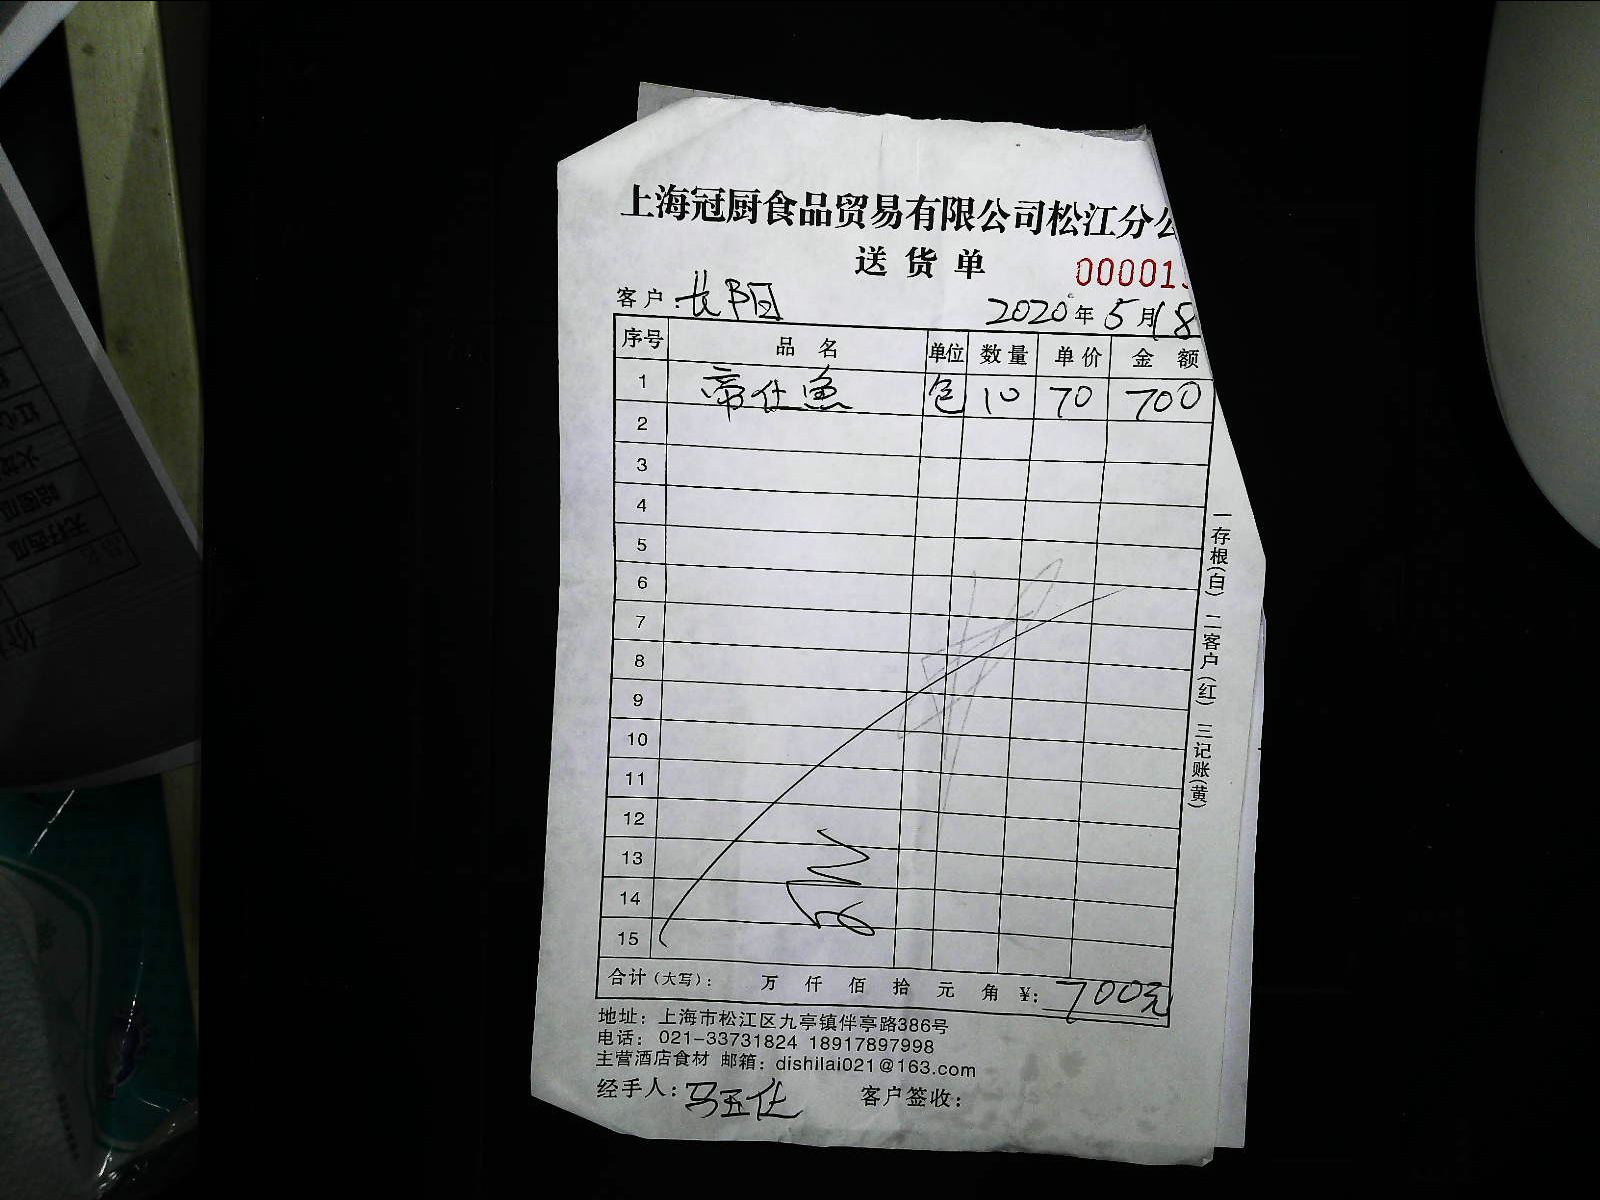 上海冠厨食品贸易有限公司松江分公
送货单
00001
客户:长阳 2020年5月18
序号 品名 单位 数量 单价 金额
1 帝仕鱼 包 10 70 700
2
3
4
5
6
7
8
9
10
11
12
13
14
15
合计(大写): 万 仟 佰 拾 元 角 ¥: 700元
地址: 上海市松江区九亭镇伴亭路386号
电话: 021-33731824 18917897998
主营酒店食材 邮箱: dishilai021@163.com
经手人: 客户签收:
一存根(白) 二客户(红) 三记账(黄)
红心
火龙
哈密瓜
无籽西瓜